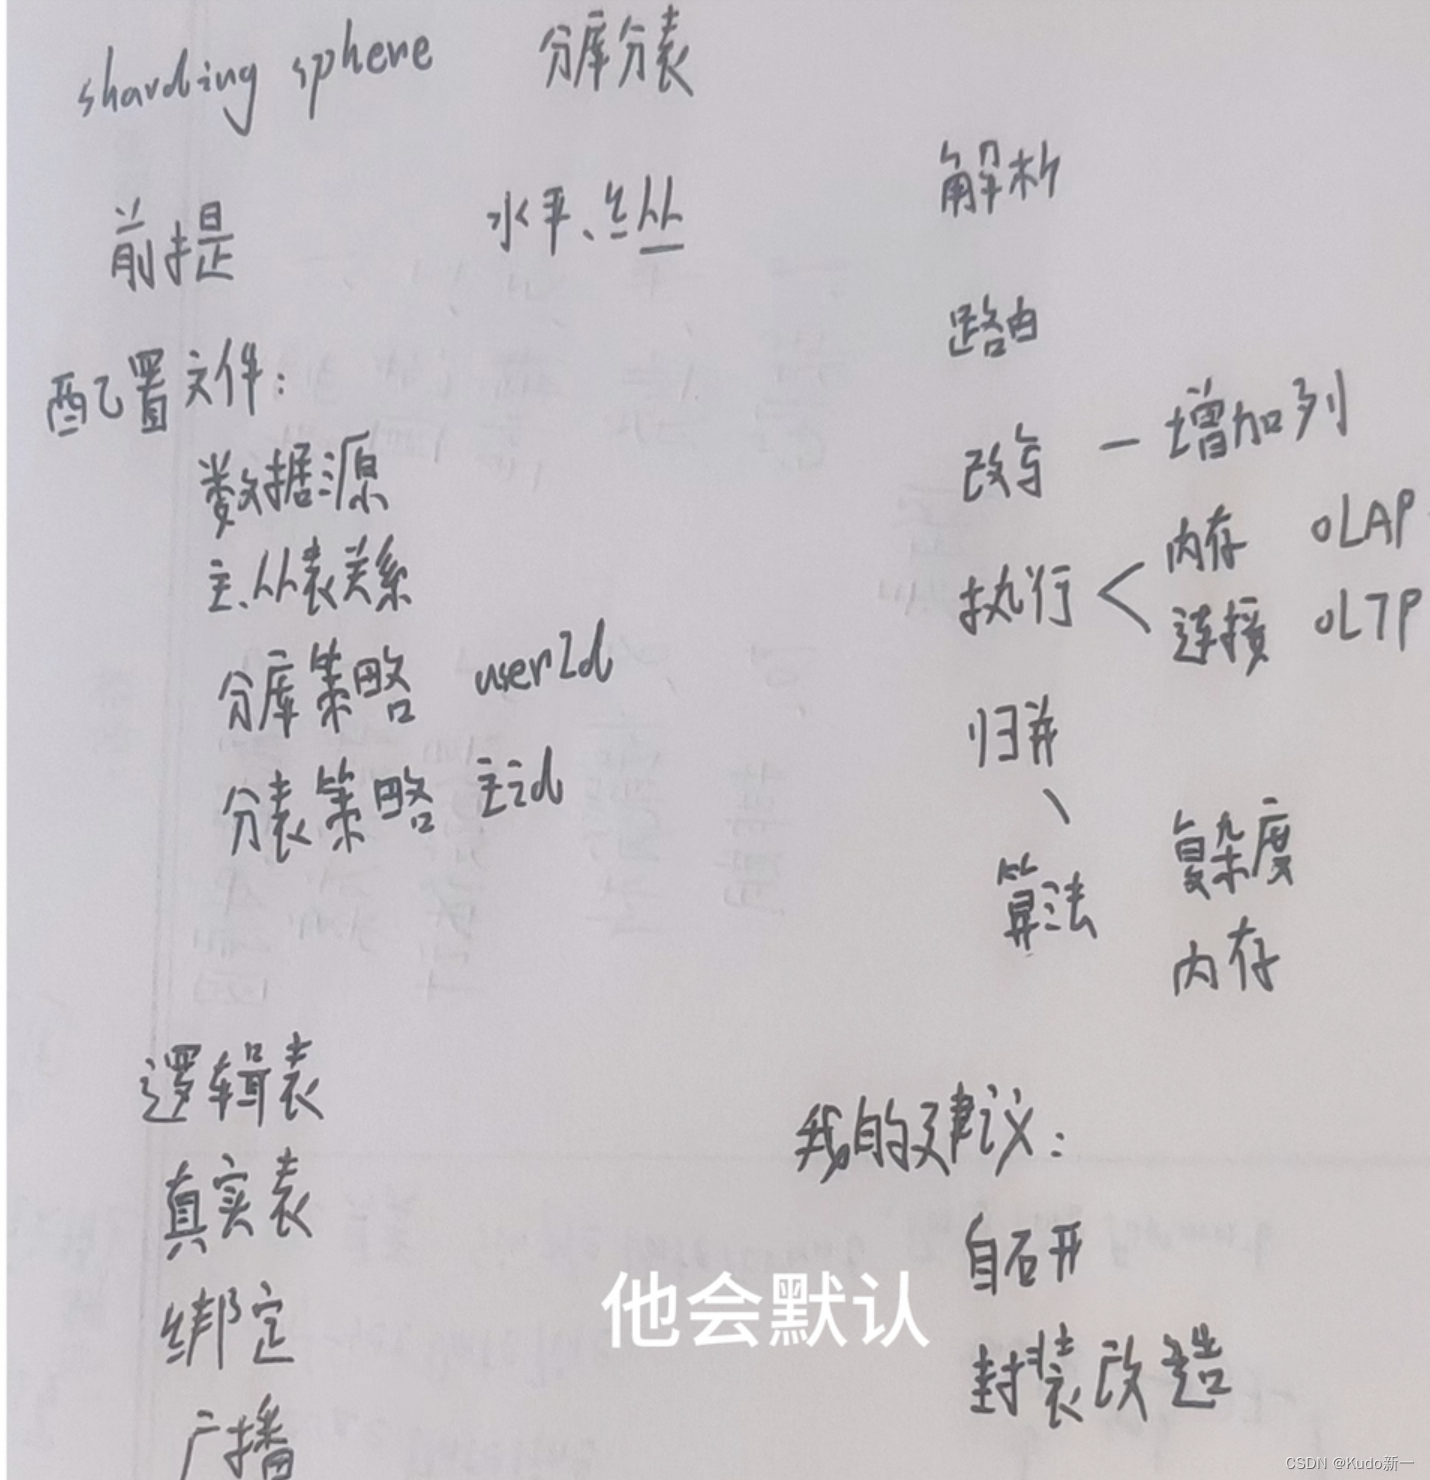 sharding sphere 分库分表
前提 水平、纵
配置文件:
数据源
主、从表关系
分库策略 userId
分表策略 主id
逻辑表
真实表
绑定
广播
解析
路由
改写 — 增加列
执行 < 内存 OLAP
连接 OLTP
归并
算法 复杂度
内存
我的建议:
自研
封装改造
他会默认
CSDN @Kudo新一